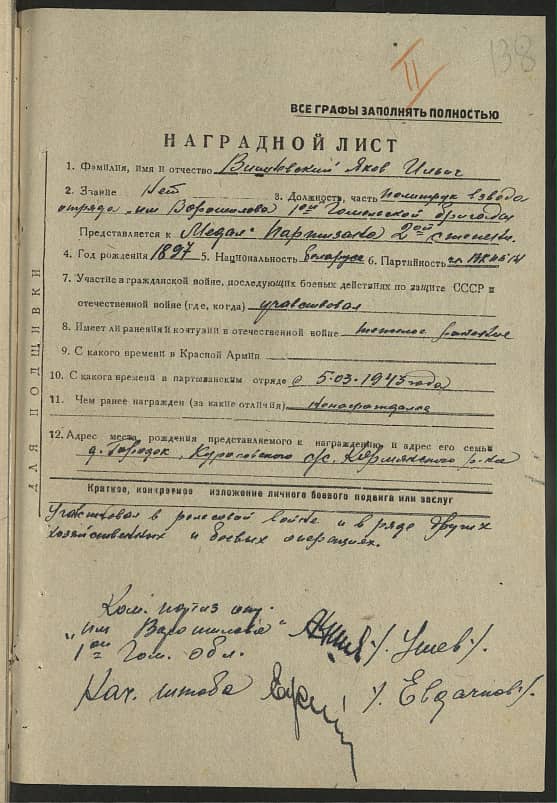 138
II
ВСЕ ГРАФЫ ЗАПОЛНЯТЬ ПОЛНОСТЬЮ
НАГРАДНОЙ ЛИСТ
1. Фамилия, имя и отчество Яков Ильич
2. Звание Нет 3. Должность, часть политрук взвода
отряда „им Ворошилова" 1ой Гомельской бригады
Представляется к Медал. Партизана 2ой степени.
4. Год рождения 1897 5. Национальность Беларус 6. Партийность
7. Участие в гражданской войне, последующих боевых действиях по защите СССР и
отечественной войне (где, когда) участвовал
8. Имеет ли ранения и контузии в отечественной войне тяжелое ранение
9. С какого времени в Красной Армии
10. С какога времени в партыванским отряде с 5-03-1943 года
11. Чем ранее награжден (за какие отличия) ненаграждался
12. Адрес места рождения представляемого к награждению и адрес его семьи
д. Городок, с/с. Кармянского р-на
Краткое, конкретное изложение личного боевого подвига или заслуг
Участвовал в релсовой войне и в ряде других
хозяйственных и боевых операциях.
Ком. партиз
„им Ворошилова" /. Ушев /.
1ой Гом. обл.
Нач. штоба /. Евдачков /.
ДЛЯ ПОДШИВКИ